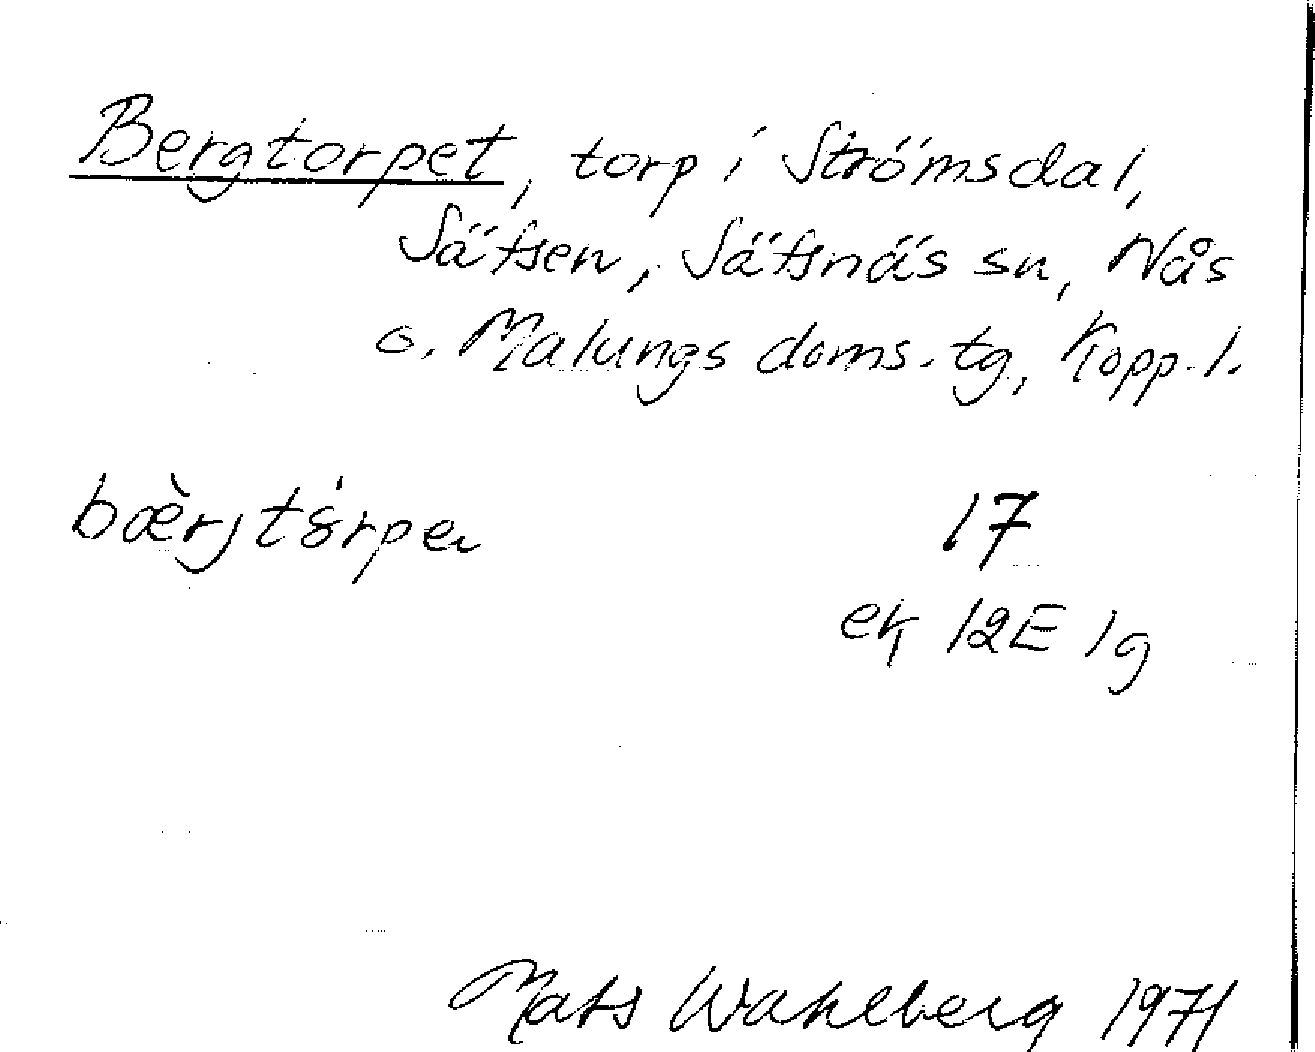 Bergtorpet, torp i Strömsdal,
Sätsen, Sätsnäs sn, Nås
o. Malungs doms. tg, Kopp. l.
bæ̀rjtórpeɴ
17
ek 12E 1g
Mats Wahlberg 1971